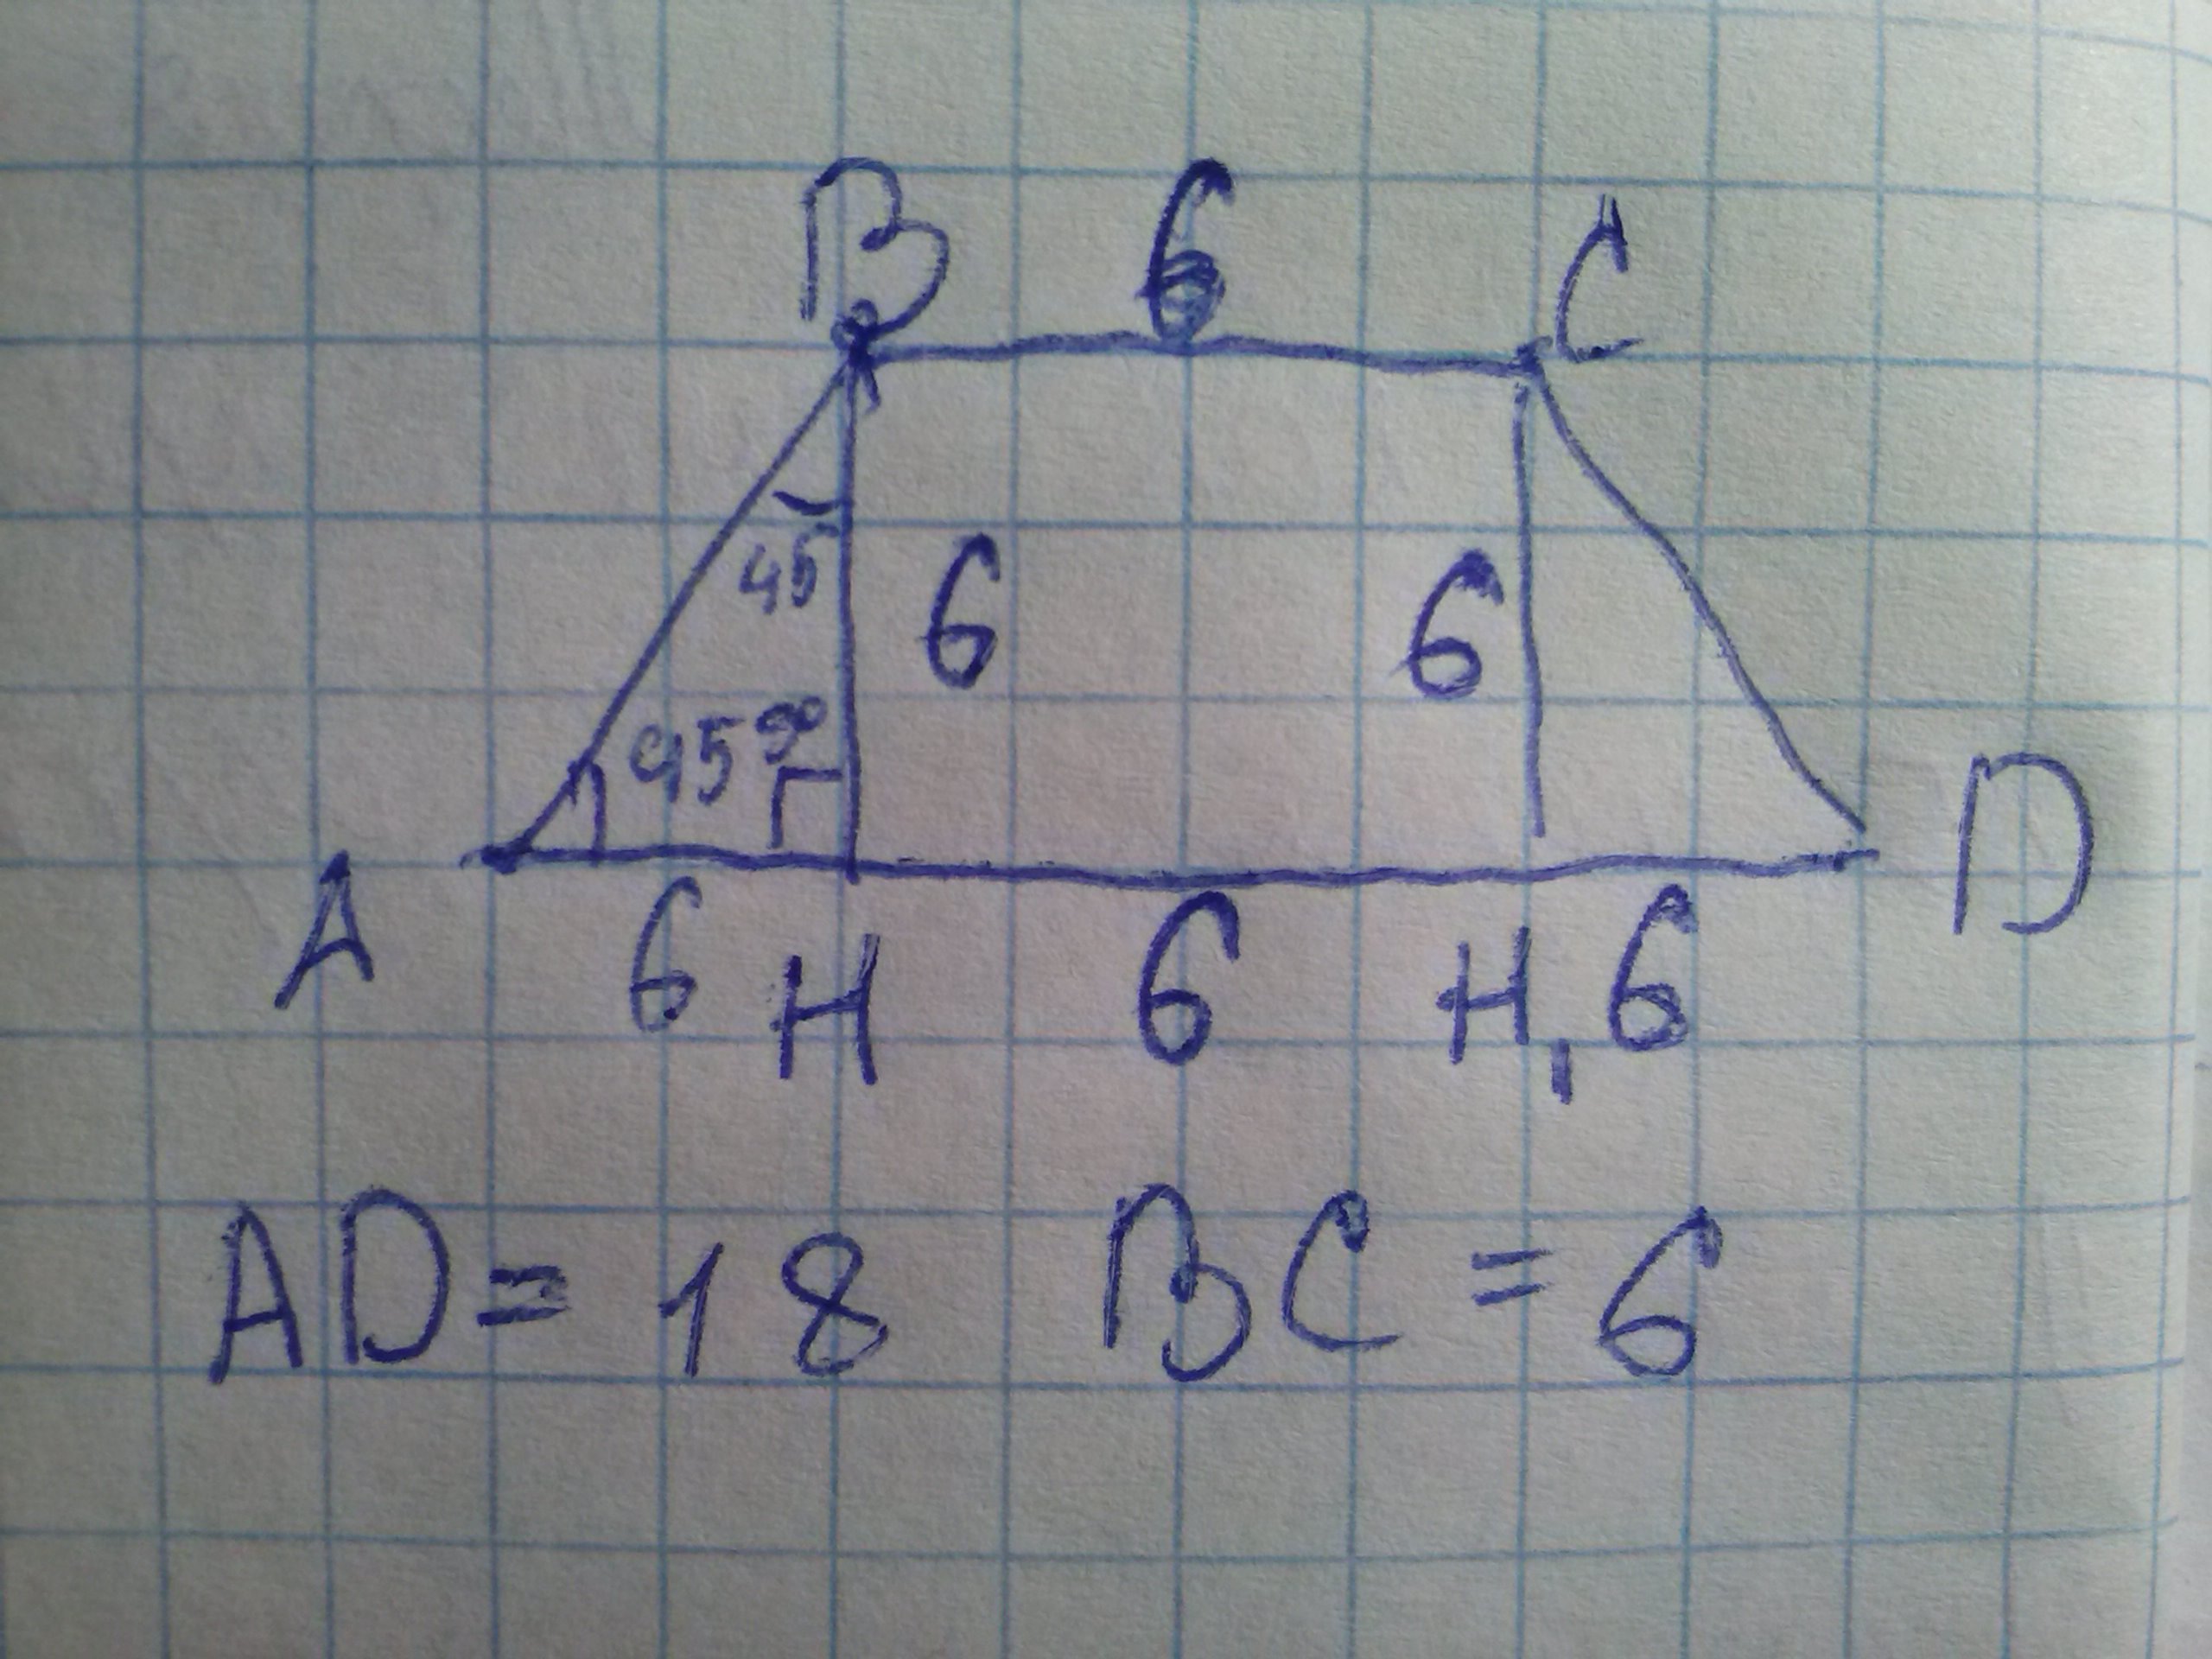 B 6 C
45 6 6
45 90
A D
6 H 6 H₁ 6
AD = 18 BC = 6